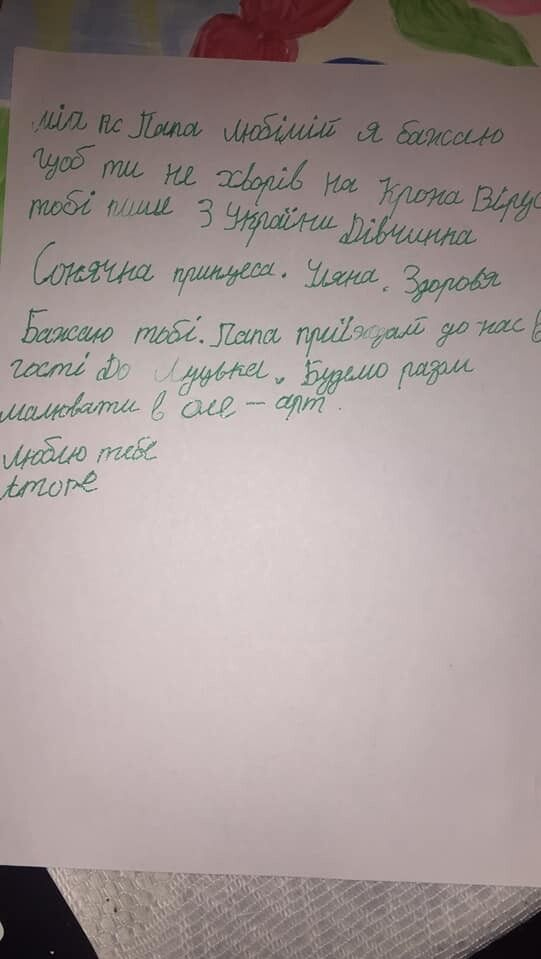 мій пс Папа любімій я бажаю
щоб ти не хворів на Крона Вірус
тобі пише З України Дівчинка
Сонячна принцеса. Уляна. Здоровя
Бажаю тобі. Папа приїздай до нас в
гості До Луцька. Будемо разом
малювати в оле-арт.
люблю тебе
Аторе